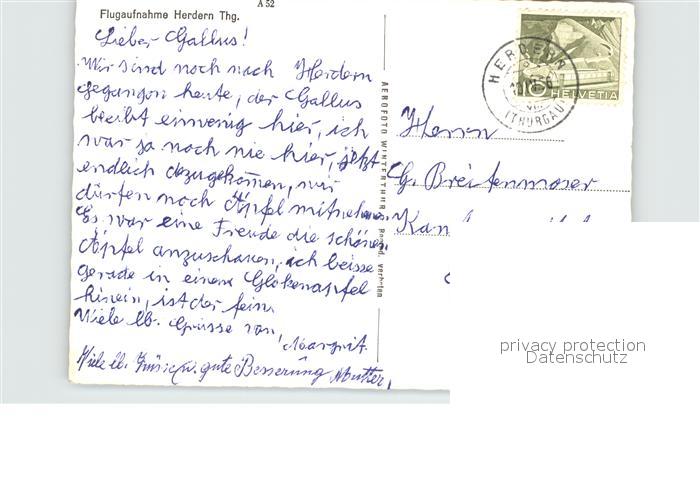 A 52
Flugaufnahme Herdern Thg.
Lieber Gallus!
Wir sind noch nach Herdern
gegangen heute, der Gallus
bleibt einwenig hier, ich
war ja noch nie hier, jetzt
endlich dazugekommen, wir
dürfen noch Äpfel mitnehmen.
Es war eine Freude die schönen
Äpfel anzuschauen, ich beisse
gerade in einen Glokenapfel
hinein, ist der fein.
Viele lb. Grüsse von,
Margrit
Viele lb. Grüsse u. gute Besserung Mutter,
AEROFOTO WINTERTHUR
verboten
HERDERN
(THURGAU)
10
HELVETIA
Herrn
G. Breitenmoser
privacy protection
Datenschutz